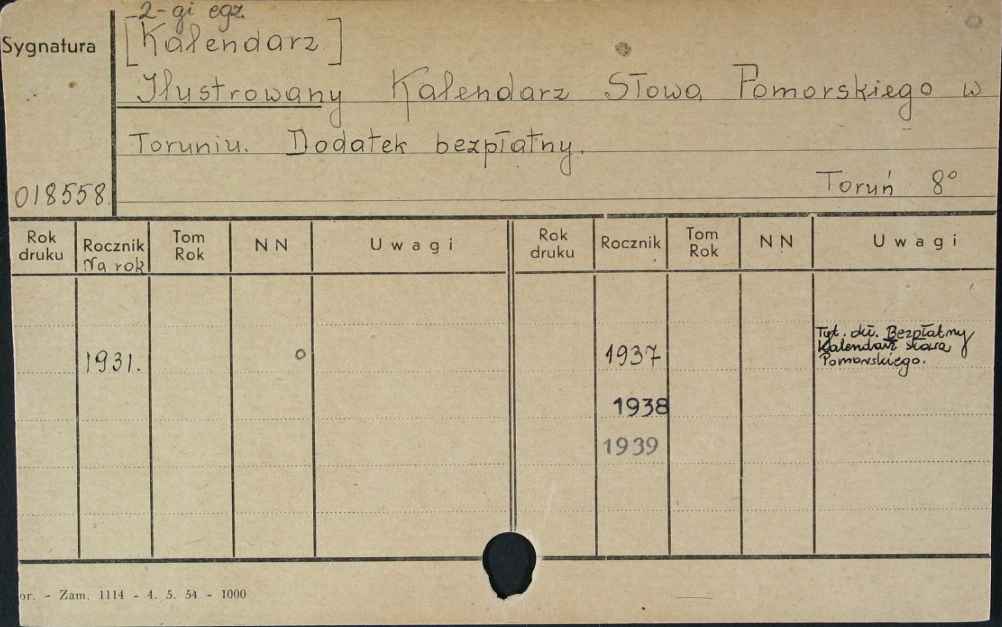 2-gi egz.
Sygnatura
[Kalendarz]
Ilustrowany Kalendarz Słowa Pomorskiego w
Toruniu. Dodatek bezpłatny.
018558.
Toruń 8°
Rok druku
Rocznik Na rok
Tom Rok
NN
Uwagi
Rok druku
Rocznik
Tom Rok
NN
Uwagi
1931.
1937
Tyt. okł. Bezpłatny
Kalendarz Słowa
Pomorskiego.
1938
1939
or. - Zam. 1114 - 4. 5. 54 - 1000